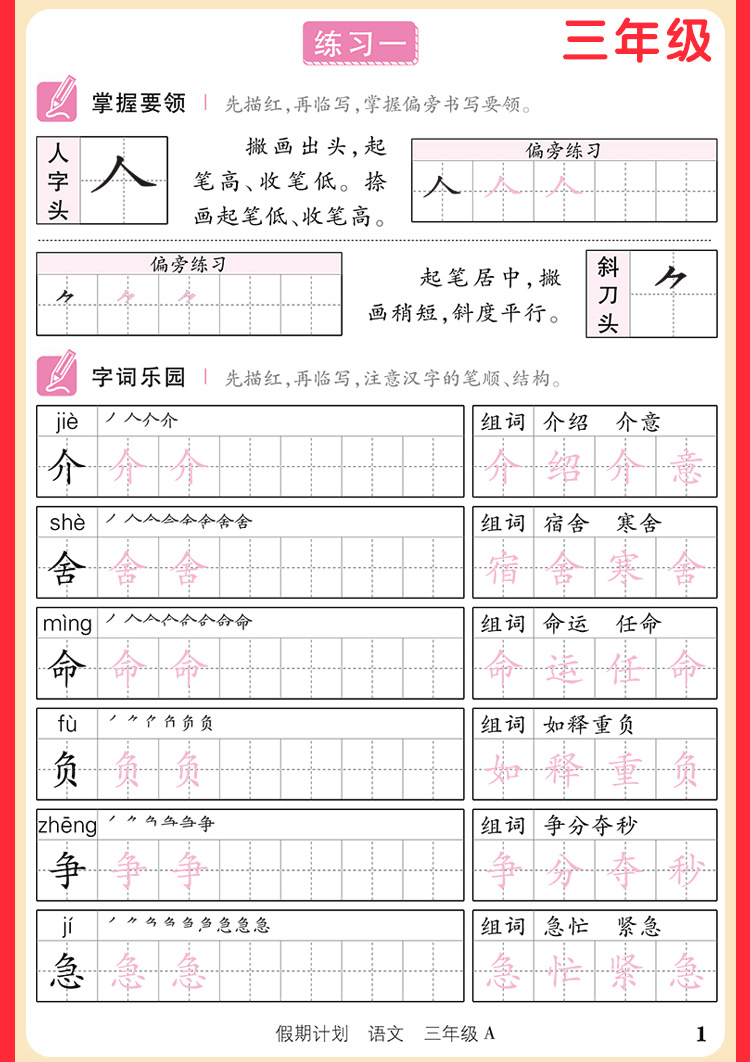 练习一
三年级
掌握要领 | 先描红,再临写,掌握偏旁书写要领。
人字头
人
撇画出头,起
笔高、收笔低。捺
画起笔低、收笔高。
偏旁练习
人 人 人
偏旁练习
⺈ ⺈ ⺈
起笔居中,撇
画稍短,斜度平行。
斜刀头
⺈
字词乐园 | 先描红,再临写,注意汉字的笔顺、结构。
jiè
介 介 介
组词 介绍 介意
介 绍 介 意
shè
舍 舍 舍
组词 宿舍 寒舍
宿 舍 寒 舍
mìng
命 命 命
组词 命运 任命
命 运 任 命
fù
负 负 负
组词 如释重负
如 释 重 负
zhēng
争 争 争
组词 争分夺秒
争 分 夺 秒
jí
急 急 急
组词 急忙 紧急
急 忙 紧 急
假期计划 语文 三年级 A
1